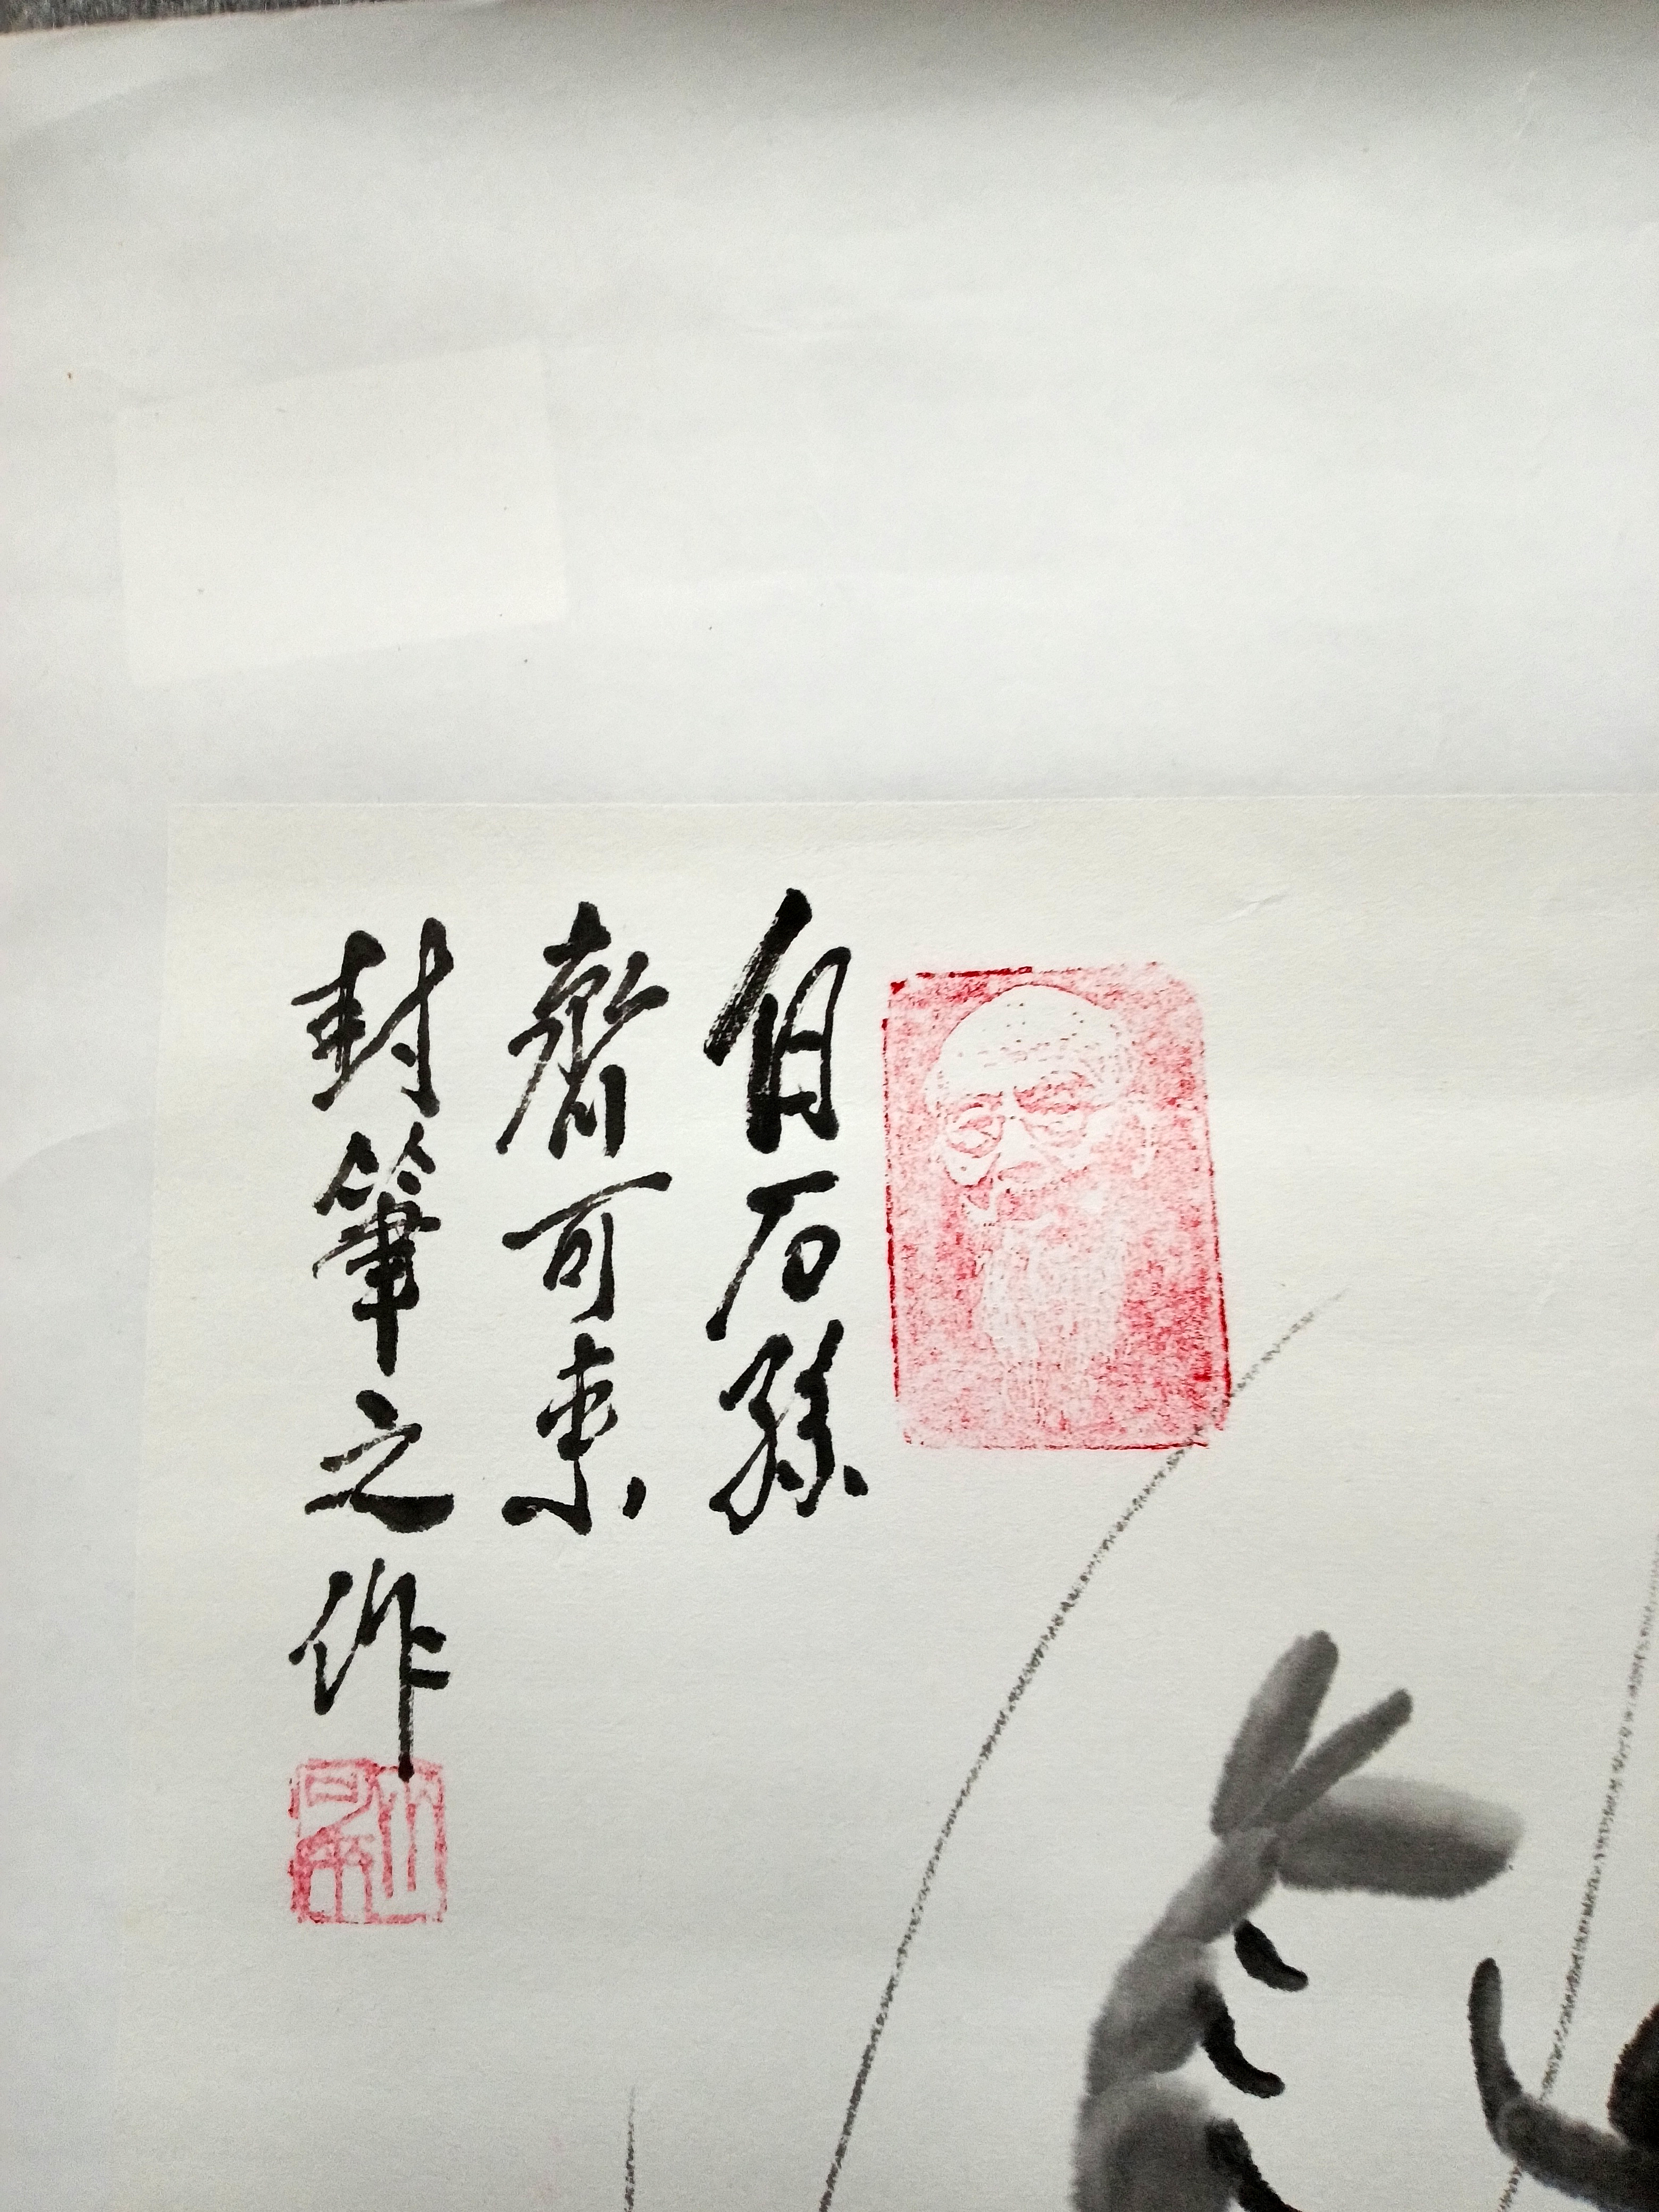 白石孫
齊可來
封筆之作